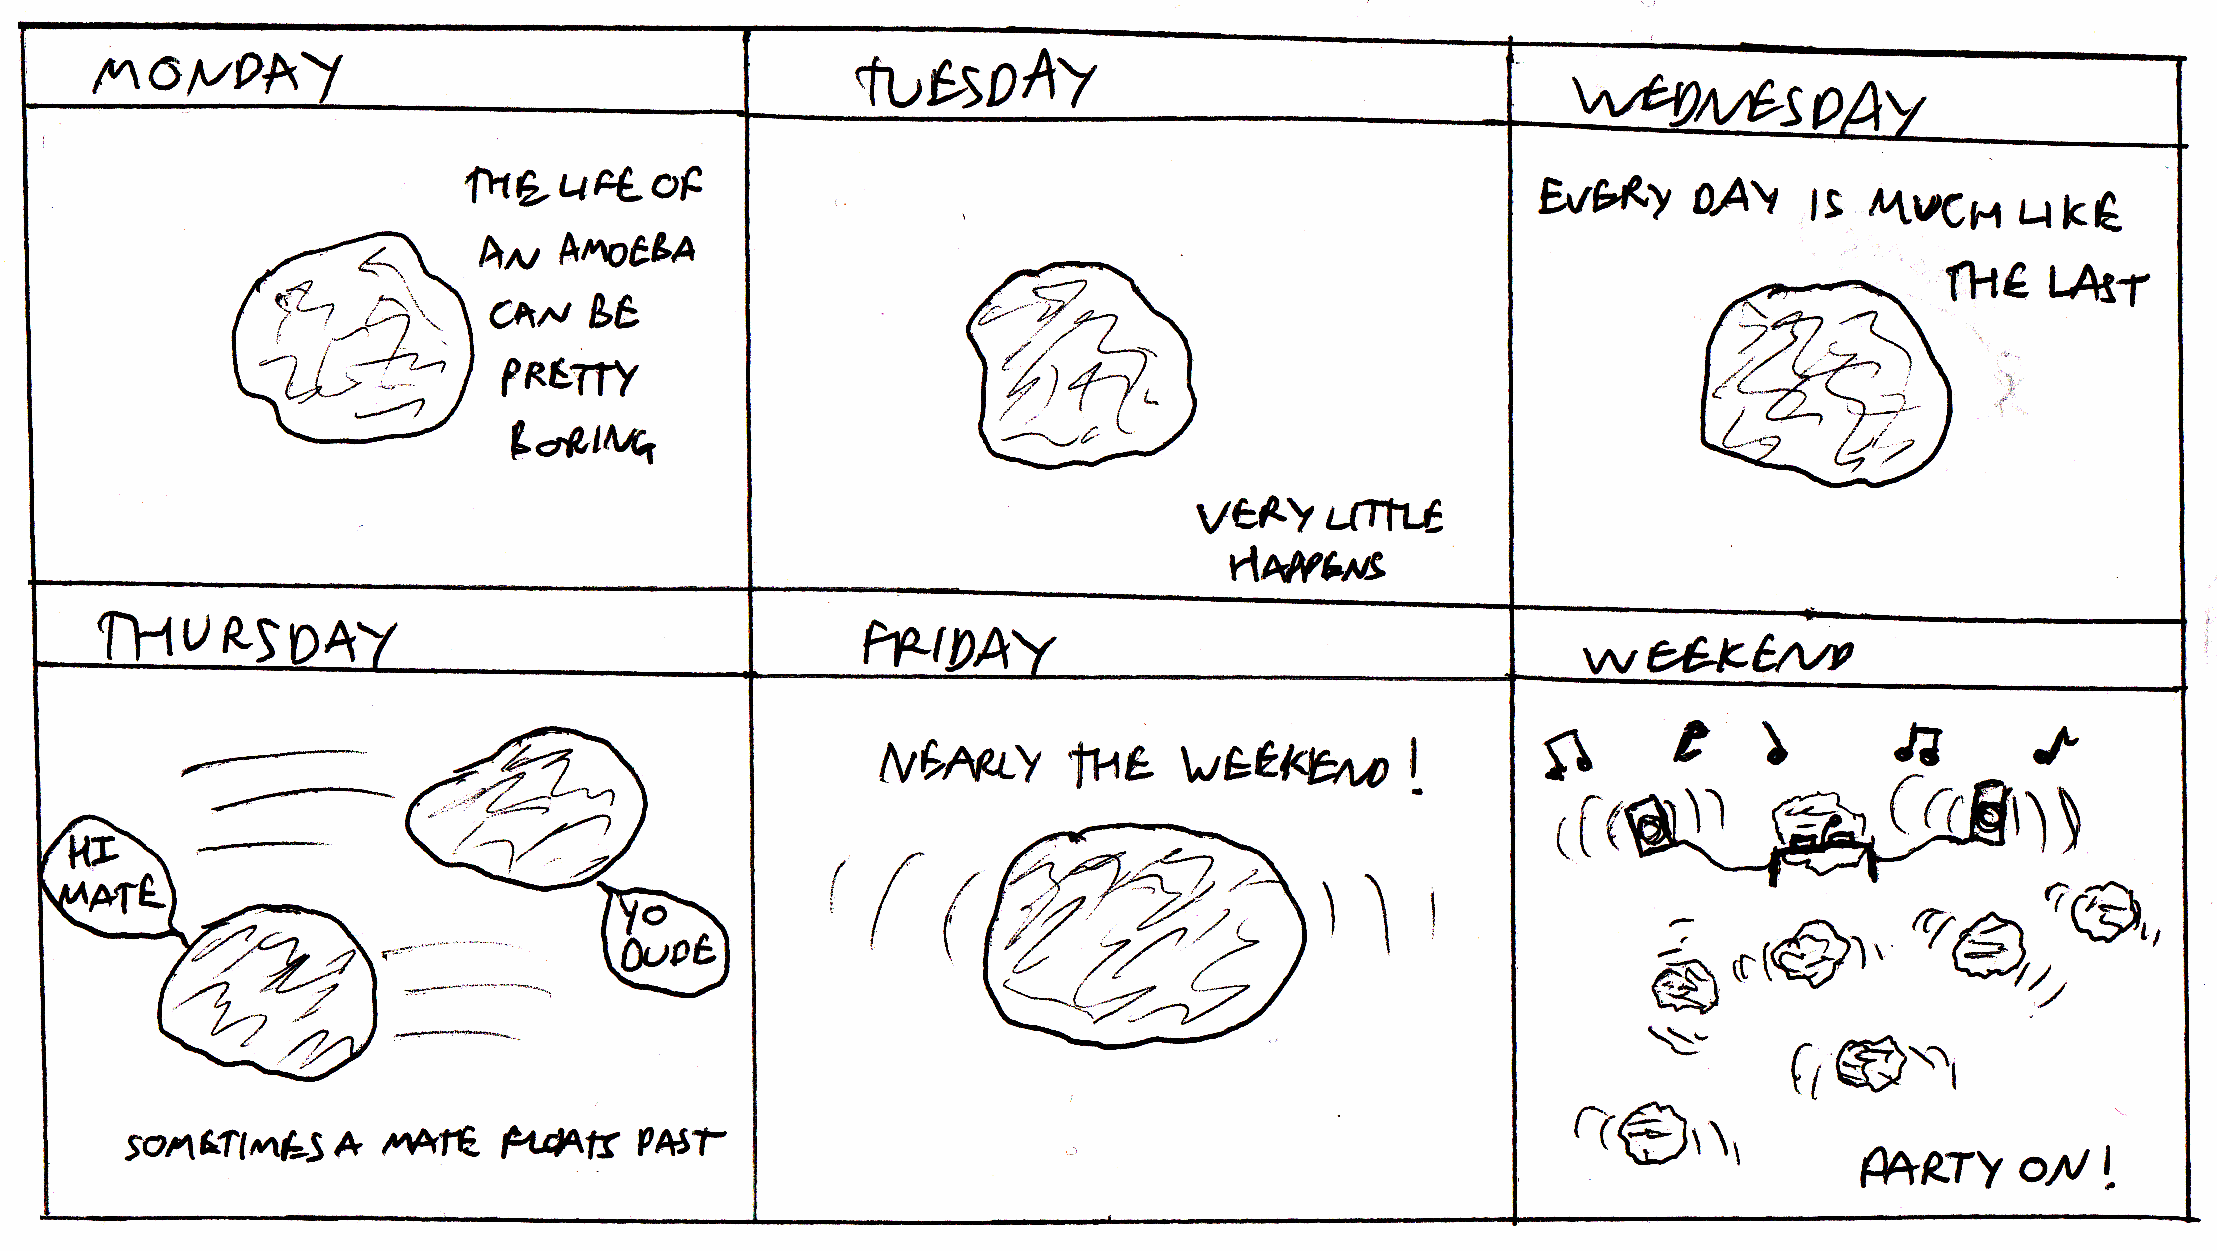 MONDAY
THE LIFE OF
AN AMOEBA
CAN BE
PRETTY
BORING
TUESDAY
VERY LITTLE
HAPPENS
WEDNESDAY
EVERY DAY IS MUCH LIKE
THE LAST
THURSDAY
HI
MATE
YO
DUDE
SOMETIMES A MATE FLOATS PAST
FRIDAY
NEARLY THE WEEKEND!
WEEKEND
PARTY ON!